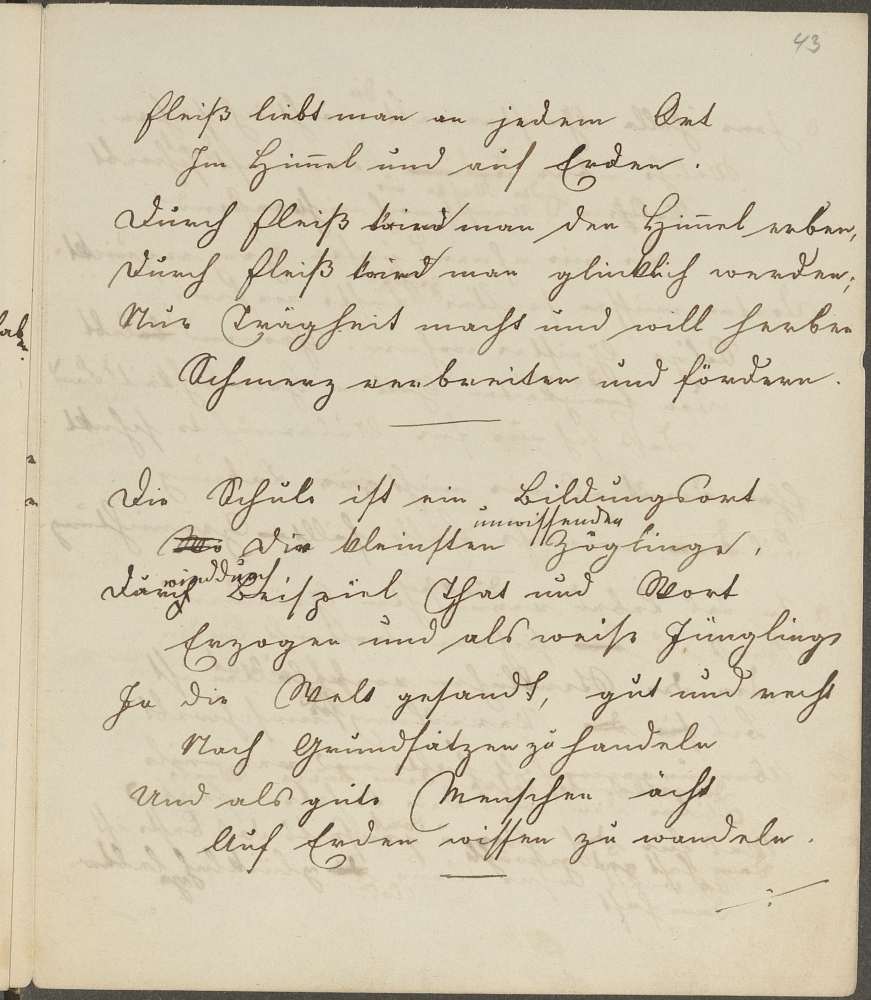 43
Fleiß liebt man an jedem Ort
Im Himmel und auf Erden.
Durch Fleiß wird man den Himmel erben,
Durch Fleiß wird man glücklich werden;
Nur Trägheit macht und will herben
Schmerz verbreiten und fördern.
Die Schule ist ein Bildungsort
Wo die kleinsten unwissenden Zöglinge,
Durch Beispiel That und Wort
Erzogen und als weise Jünglinge
In die Welt gesandt, gut und recht
Nach Grundsätzen zu handeln
Und als gute Menschen ächt
Auf Erden wissen zu wandeln.